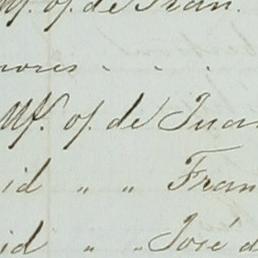 of. de Fran.
nores " " "
Mf. of. de Juan
id " " Fran
id " " José d